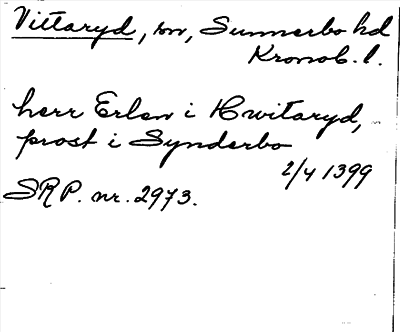 Vittaryd, sn, Sunnerbo hd
Kronob. l.
herr Erlan i Hwitaryd,
prost i Synderbo
2/4 1399
SRP. nr. 2973.